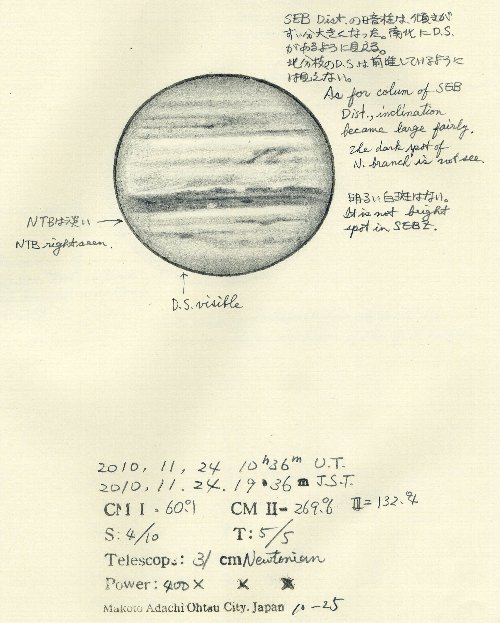 SEB Dist.の暗柱は、傾きが
ずい分大きくなった。南北にD.S.
があるように見える。
北分枝のD.S.は前進しているように
は見えない。
As for colum of SEB
Dist., inclination
became large fairly.
The dark spot of
N. branch is not see
明るい白斑はない。
It is not bright
spot in SEBZ.
NTBは淡い
NTB right seen.
D.S. visible
2010, 11, 24 10h36m U.T.
2010. 11. 24. 19·36m J.S.T.
CM I - 60.°1 CM II - 269.°6 III = 132.°4
S: 4/10 T: 5/5
Telescope: 31 cm Newtonian
Power: 400× × ×
Makoto Adachi Ohtsu City. Japan 10-25